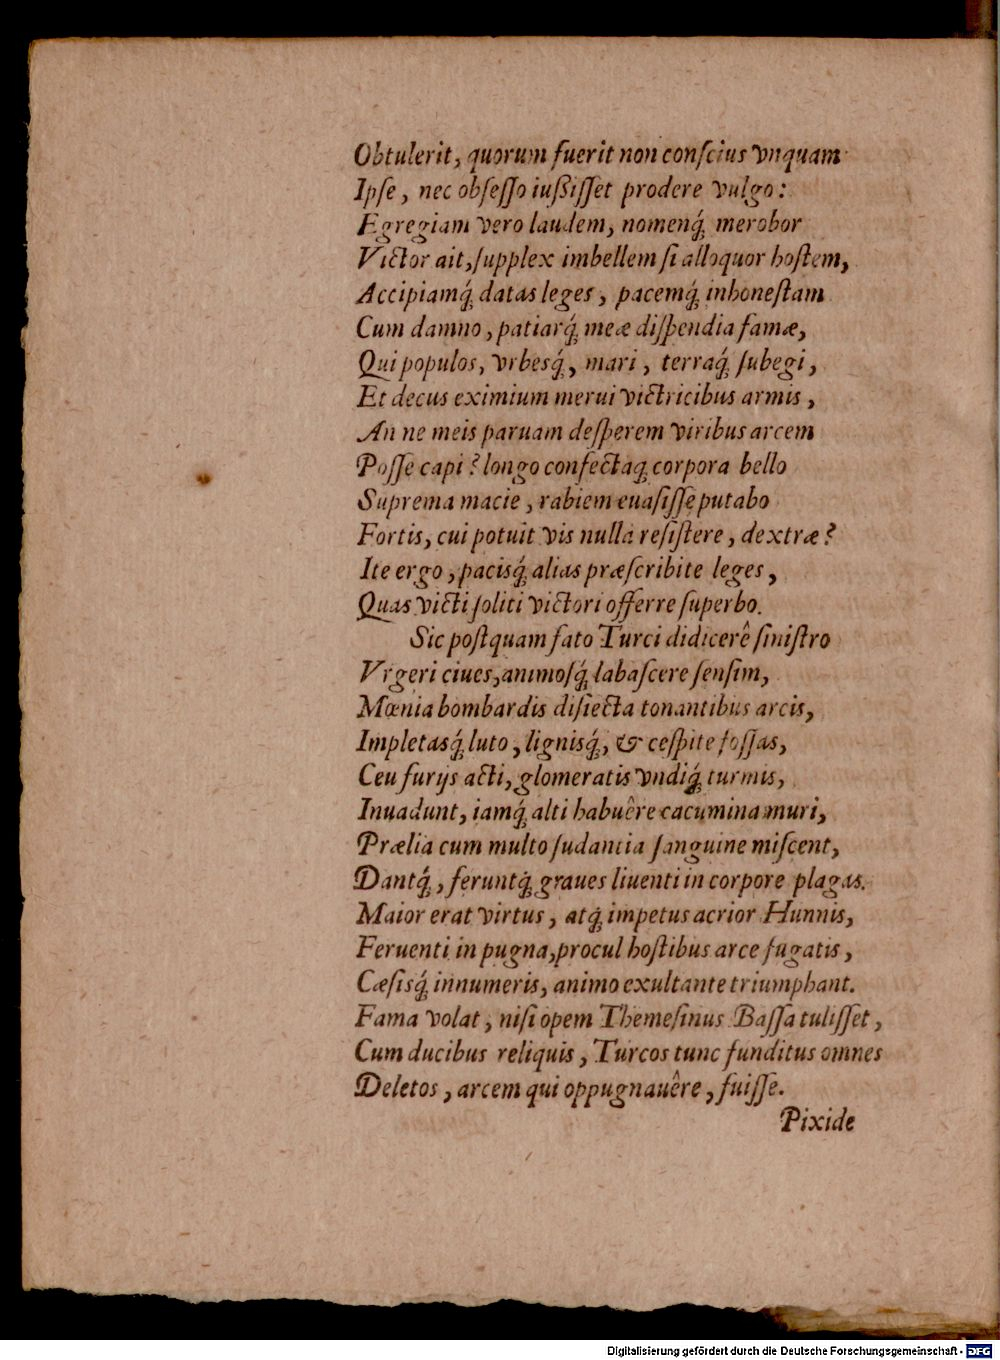 Obtulerit, quorum fuerit non conſcius vnquam
Ipſe, nec obſeſſo iußiſſet prodere vulgo:
Egregiam vero laudem, nomenq́; merobor
Victor ait, ſupplex imbellem ſi alloquor hoſtem,
Accipiamq́; datas leges, pacemq́; inhoneſtam
Cum damno, patiarq́; meæ diſpendia famæ,
Qui populos, vrbesq́;, mari, terraq́; ſubegi,
Et decus eximium merui victricibus armis,
An ne meis paruam deſperem viribus arcem
Poſſe capi? longo confectaq; corpora bello
Suprema macie, rabiem euaſiſſe putabo
Fortis, cui potuit vis nulla reſiſtere, dextræ?
Ite ergo, pacisq́; alias præſcribite leges,
Quas victi ſoliti victori offerre ſuperbo.
Sic poſtquam fato Turci didicerê ſiniſtro
Vrgeri ciues, animoſq́; labaſcere ſenſim,
Mœnia bombardis diſiecta tonantibus arcis,
Impletasq́; luto, lignisq́;, & ceſpite foſſas,
Ceu furijs acti, glomeratis vndiq́; turmis,
Inuadunt, iamq́; alti habuêre cacumina muri,
Prælia cum multo ſudantia ſanguine miſcent,
Dantq́;, feruntq́; graues liuenti in corpore plagas.
Maior erat virtus, atq́; impetus acrior Hunnis,
Feruenti in pugna, procul hoſtibus arce fugatis,
Cæſisq́; innumeris, animo exultante triumphant.
Fama volat, niſi opem Themeſinus Baſſa tuliſſet,
Cum ducibus reliquis, Turcos tunc funditus omnes
Deletos, arcem qui oppugnauêre, fuiſſe.
Pixide
Digitalisierung gefördert durch die Deutsche Forschungsgemeinschaft - DFG